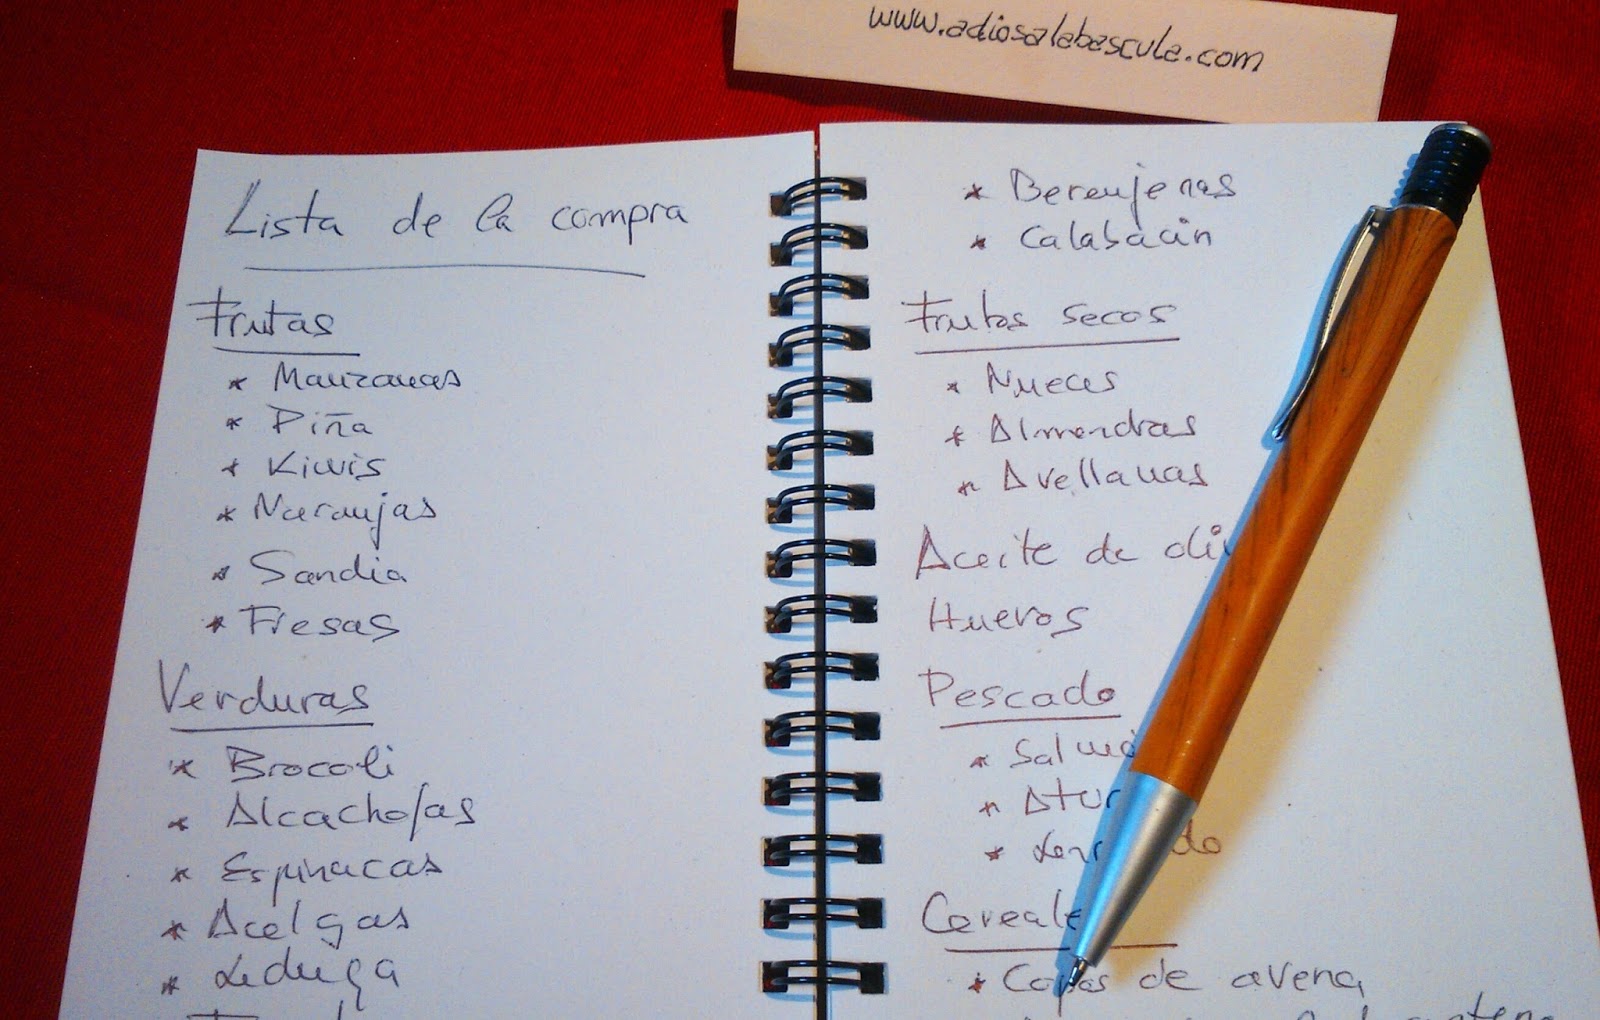 www.adiosalabascula.com
Lista de la compra
Frutas
* Manzanas
* Piña
* Kiwis
* Naranjas
* Sandia
* Fresas
Verduras
* Brocoli
* Alcachofas
* Espinacas
* Acelgas
* Lechuga
* Berenjenas
* Calabacin
Frutos secos
* Nueces
* Almendras
* Avellanas
Aceite de oli
Huevos
Pescado
* Salmó
* Atu
Cereale
* Copos de avena